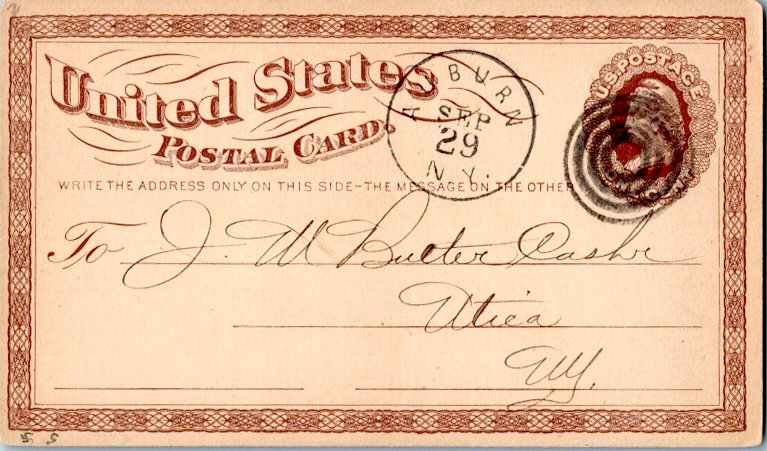 United States
POSTAL CARD.
AUBURN
SEP
29
N.Y.
U.S. POSTAGE
WRITE THE ADDRESS ONLY ON THIS SIDE–THE MESSAGE ON THE OTHER
To J. M Butler Cashr
Utica
NY.